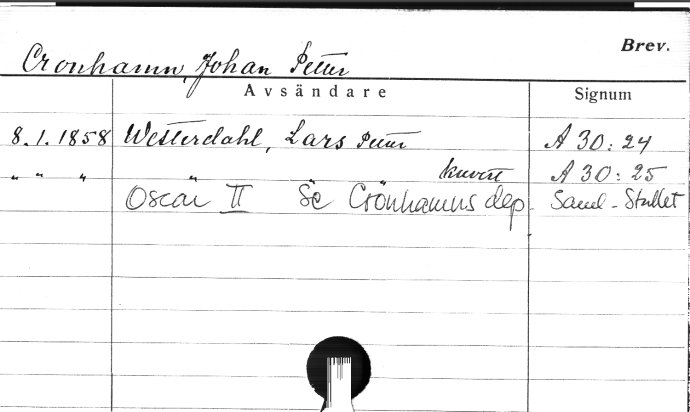 Brev.
Cronhamn, Johan Peter
Avsändare Signum
8.1.1858 Westerdahl, Lars Peter A 30:24
" " " kuvert A 30:25
Oscar II Se Cronhamns dep. Saml-Stallet